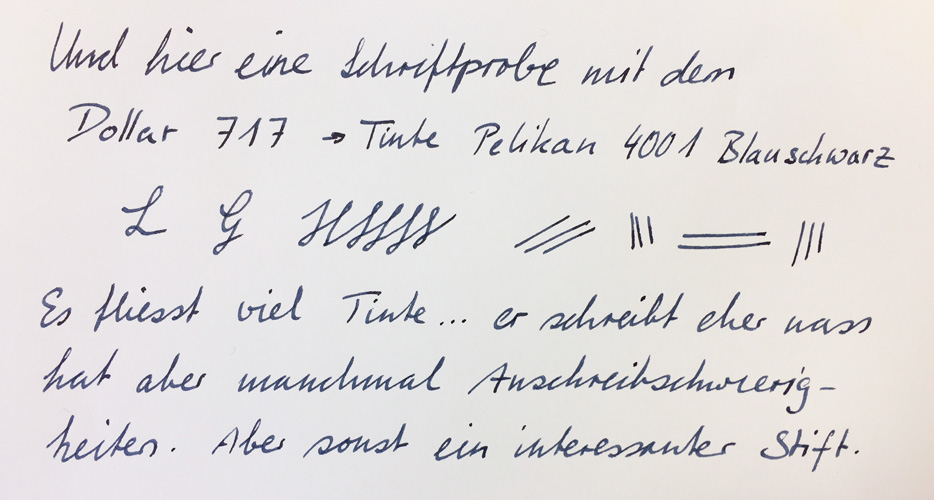 Und hier eine Schriftprobe mit dem
Dollar 717 → Tinte Pelikan 4001 Blauschwarz
L G
Es fliesst viel Tinte... er schreibt eher nass
hat aber manchmal Anschreibschwierig-
keiten. Aber sonst ein interessanter Stift.